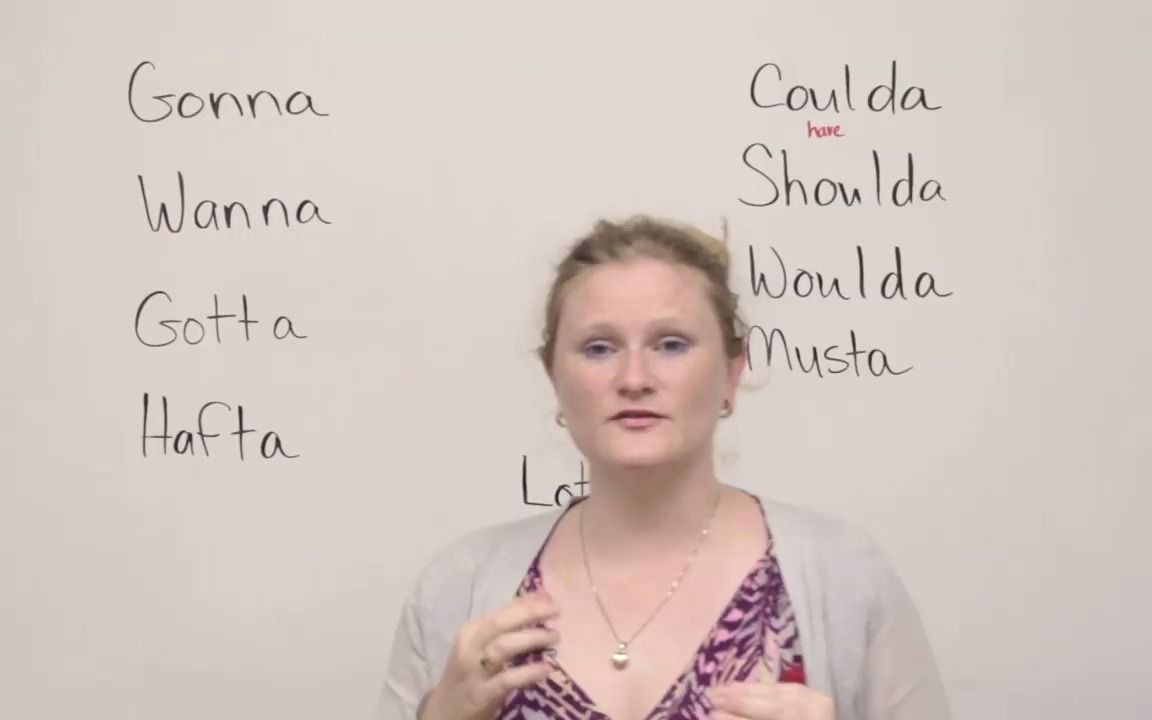 Gonna
Wanna
Gotta
Hafta
Coulda
have
Shoulda
Woulda
Musta